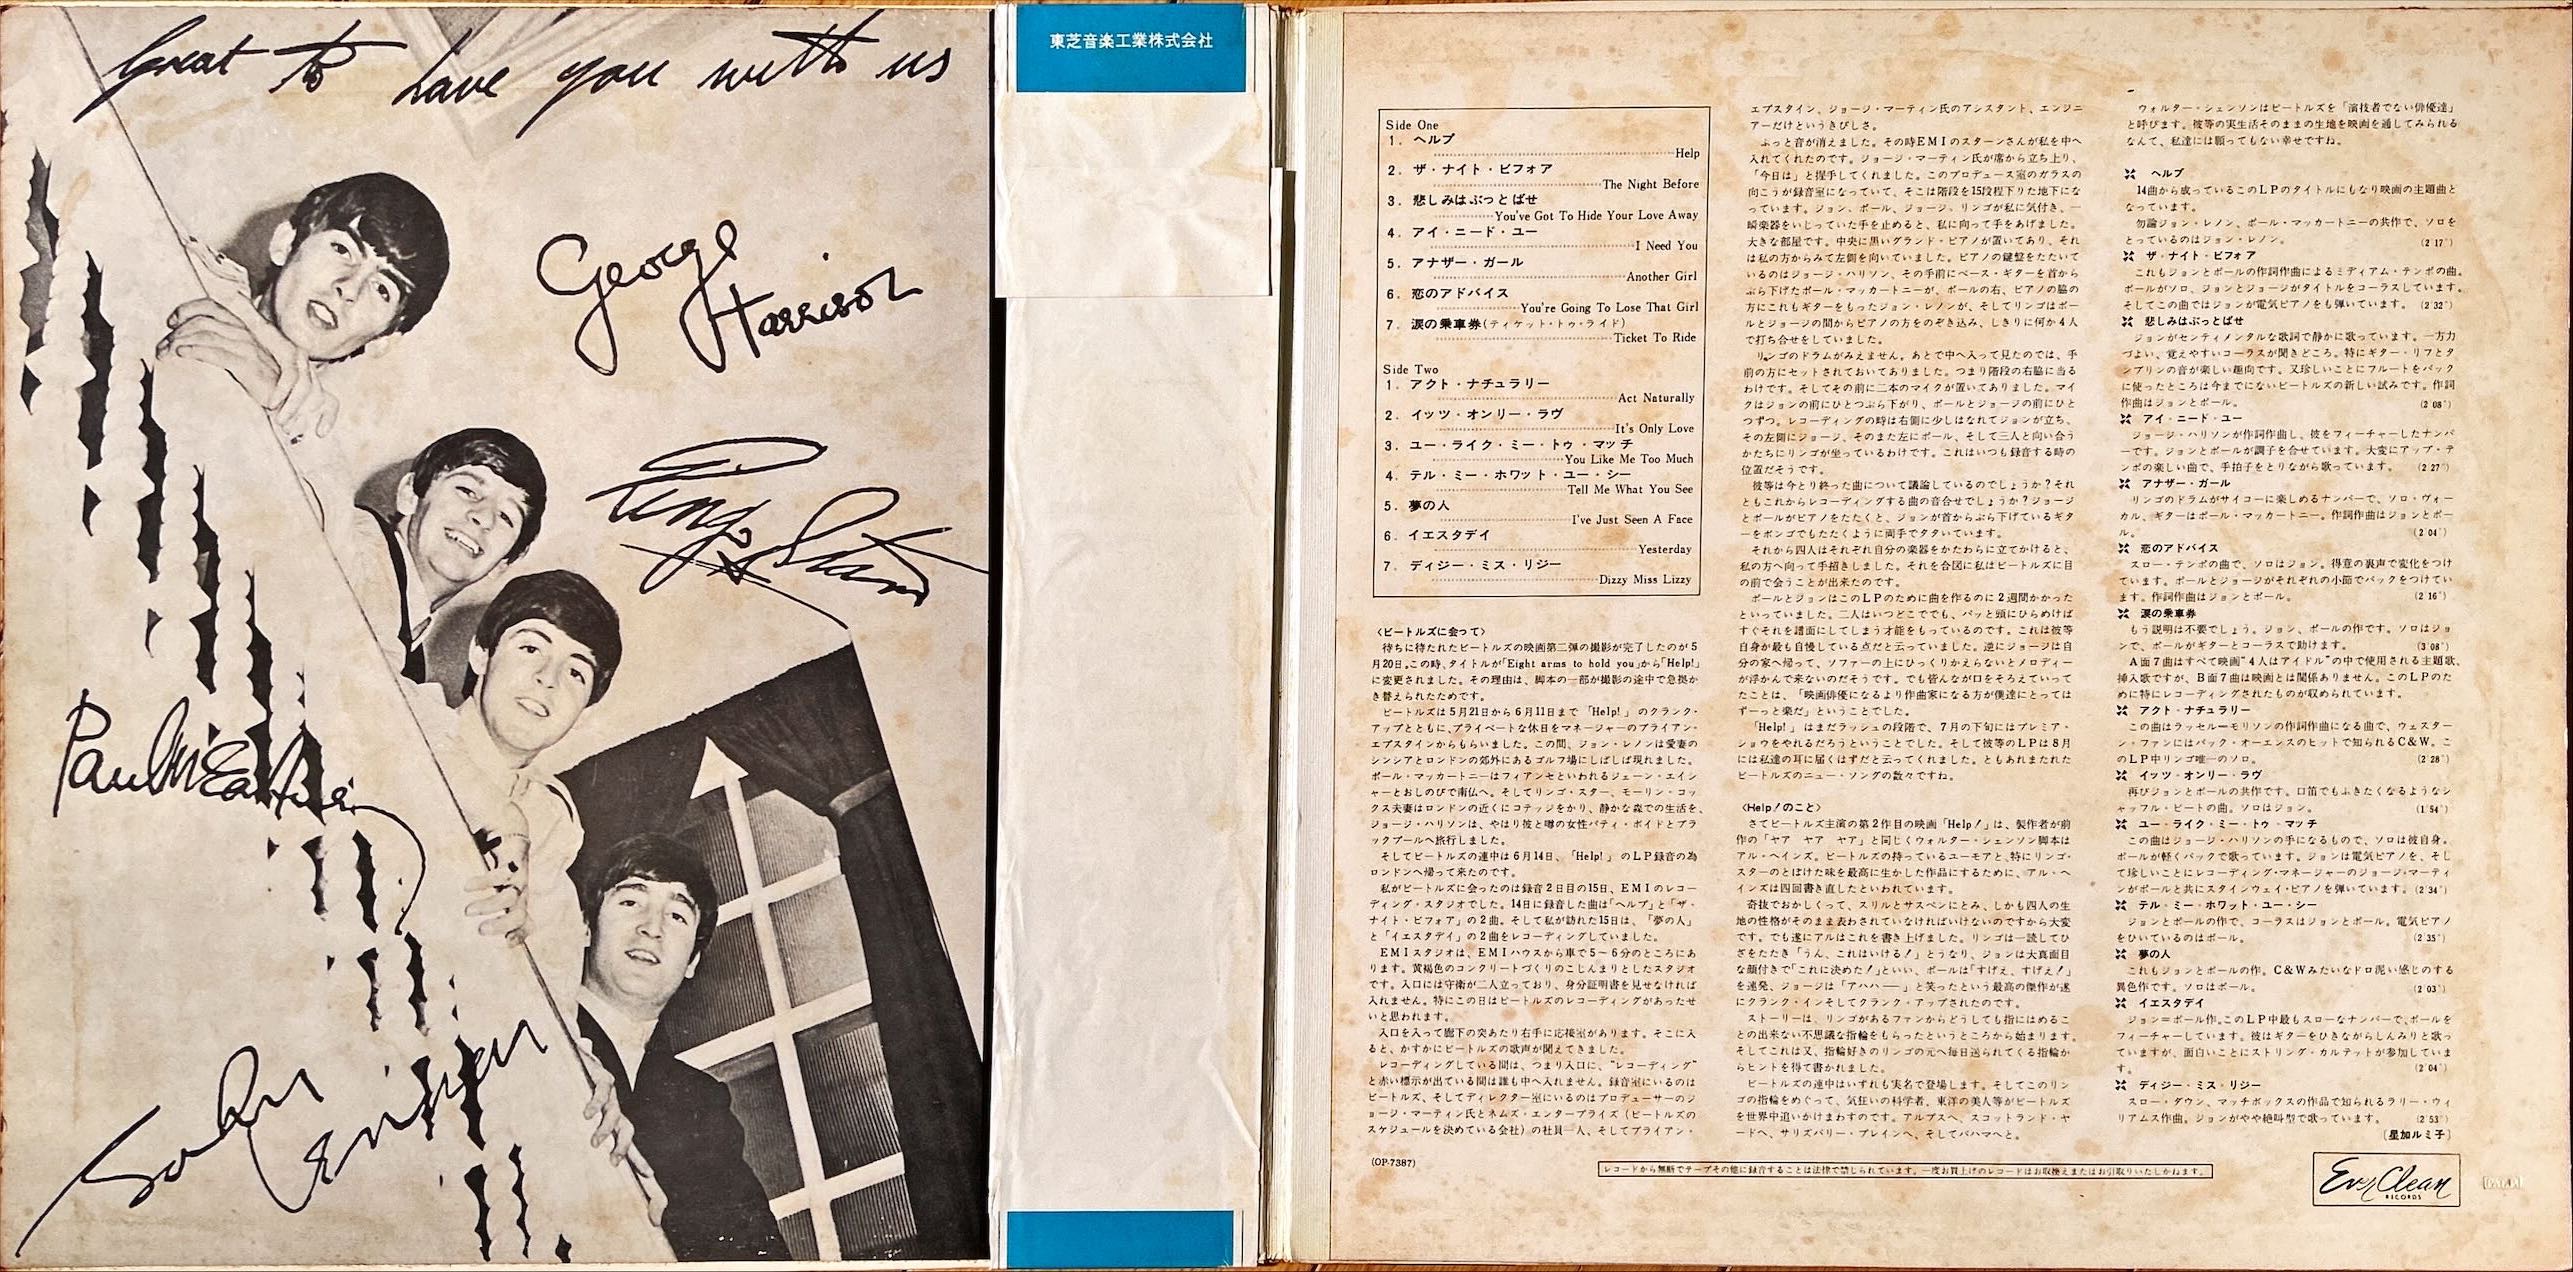 Great to have you with us
George
Harrison
Ringo Starr
Paul McCartney
John
Lennon
東芝音楽工業株式会社
Side One
1. ヘルプ
Help
2. ザ・ナイト・ビフォア
The Night Before
3. 悲しみはぶっとばせ
You've Got To Hide Your Love Away
4. アイ・ニード・ユー
I Need You
5. アナザー・ガール
Another Girl
6. 恋のアドバイス
You're Going To Lose That Girl
7. 涙の乗車券(ティケット・トゥ・ライド)
Ticket To Ride
Side Two
1. アクト・ナチュラリー
Act Naturally
2. イッツ・オンリー・ラヴ
It's Only Love
3. ユー・ライク・ミー・トゥ・マッチ
You Like Me Too Much
4. テル・ミー・ホワット・ユー・シー
Tell Me What You See
5. 夢の人
I've Just Seen A Face
6. イエスタデイ
Yesterday
7. ディジー・ミス・リジー
Dizzy Miss Lizzy
〈ビートルズに会って〉
待ちに待たれたビートルズの映画第二弾の撮影が完了したのが5
月20日。この時、タイトルが「Eight arms to hold you」から「Help!」
に変更されました。その理由は、脚本の一部が撮影の途中で急拠か
き替えられたためです。
ビートルズは5月21日から6月11日まで「Help!」のクランク・
アップとともに、プライベートな休日をマネージャーのブライアン・
エプスタインからもらいました。この間、ジョン・レノンは愛妻の
シンシアとロンドンの郊外にあるゴルフ場にしばしば現れました。
ポール・マッカートニーはフィアンセといわれるジェーン・エイシ
ャーとおしのびで南仏へ。そしてリンゴ・スター、モーリン・コッ
クス夫妻はロンドンの近くにコテッジをかり、静かな森での生活を、
ジョージ・ハリソンは、やはり彼と噂の女性パティ・ボイドとブラ
ックプールへ旅行しました。
そしてビートルズの連中は6月14日、「Help!」のLP録音の為
ロンドンへ帰って来たのです。
私がビートルズに会ったのは録音2日目の15日、EMIのレコー
ディング・スタジオでした。14日に録音した曲は「ヘルプ」と「ザ・
ナイト・ビフォア」の2曲。そして私が訪れた15日は、「夢の人」
と「イエスタデイ」の2曲をレコーディングしていました。
EMIスタジオは、EMIハウスから車で5〜6分のところにあ
ります。黄褐色のコンクリートづくりのこじんまりとしたスタジオ
です。入口には守衛が二人立っており、身分証明書を見せなければ
入れません。特にこの日はビートルズのレコーディングがあったせ
いと思われます。
入口を入って廊下の突あたり右手に応接室があります。そこに入
ると、かすかにビートルズの歌声が聞えてきました。
レコーディングしている間は、つまり入口に、"レコーディング"
と赤い標示が出ている間は誰も中へ入れません。録音室にいるのは
ビートルズ、そしてディレクター室にいるのはプロデューサーのジ
ョージ・マーティン氏とネムズ・エンタープライズ(ビートルズの
スケジュールを決めている会社)の社員一人、そしてブライアン・
エプスタイン、ジョージ・マーティン氏のアシスタント、エンジニ
アーだけというきびしさ。
ふっと音が消えました。その時EMIのスターンさんが私を中へ
入れてくれたのです。ジョージ・マーティン氏が席から立ち上り、
「今日は」と握手してくれました。このプロデュース室のガラスの
向こうが録音室になっていて、そこは階段を15段程下りた地下にな
っています。ジョン、ポール、ジョージ、リンゴが私に気付き、一
瞬楽器をいじっていた手を止めると、私に向って手をあげました。
大きな部屋です。中央に黒いグランド・ピアノが置いてあり、それ
は私の方からみて左側を向いていました。ピアノの鍵盤をたたいて
いるのはジョージ・ハリソン、その手前にベース・ギターを首から
ぶら下げたポール・マッカートニーが、ポールの右、ピアノの脇の
方にこれもギターをもったジョン・レノンが、そしてリンゴはポー
ルとジョージの間からピアノの方をのぞき込み、しきりに何か4人
で打ち合せをしていました。
リンゴのドラムがみえません。あとで中へ入って見たのでは、手
前の方にセットされておいてありました。つまり階段の右脇に当る
わけです。そしてその前に二本のマイクが置いてありました。マイ
クはジョンの前にひとつぶら下がり、ポールとジョージの前にひと
つずつ。レコーディングの時は右側に少しはなれてジョンが立ち、
その左側にジョージ、そのまた左にポール、そして三人と向い合う
かたちにリンゴが坐っているわけです。これはいつも録音する時の
位置だそうです。
彼等は今とり終った曲について議論しているのでしょうか?それ
ともこれからレコーディングする曲の音合せでしょうか?ジョージ
とポールがピアノをたたくと、ジョンが首からぶら下げているギタ
ーをボンゴでもたたくように両手でタタいています。
それから四人はそれぞれ自分の楽器をかたわらに立てかけると、
私の方へ向って手招きしました。それを合図に私はビートルズに目
の前で会うことが出来たのです。
ポールとジョンはこのLPのために曲を作るのに2週間かかった
といっていました。二人はいつどこででも、パッと頭にひらめけば
すぐそれを譜面にしてしまう才能をもっているのです。これは彼等
自身が最も自慢している点だと云っていました。逆にジョージは自
分の家へ帰って、ソファーの上にひっくりかえらないとメロディー
が浮かんで来ないのだそうです。でも皆んなが口をそろえていって
たことは、「映画俳優になるより作曲家になる方が僕達にとっては
ずーっと楽だ」ということでした。
「Help!」はまだラッシュの段階で、7月の下旬にはプレミア・
ショウをやれるだろうということでした。そして彼等のLPは8月
には私達の耳に届くはずだと云ってくれました。ともあれまたれた
ビートルズのニュー・ソングの数々ですね。
〈Help!のこと〉
さてビートルズ主演の第2作目の映画「Help!」は、製作者が前
作の「ヤア ヤア ヤア」と同じくウォルター・シェンソン脚本は
アル・ヘインズ。ビートルズの持っているユーモアと、特にリンゴ・
スターのとぼけた味を最高に生かした作品にするために、アル・ヘ
インズは四回書き直したといわれています。
奇抜でおかしくって、スリルとサスペンにとみ、しかも四人の生
地の性格がそのまま表わされていなければいけないのですから大変
です。でも遂にアルはこれを書き上げました。リンゴは一読してひ
ざをたたき「うん、これはいける!」とうなり、ジョンは大真面目
な顔付きで「これに決めた!」といい、ポールは「すげえ、すげえ!」
を連発、ジョージは「アハハ――」と笑ったという最高の傑作が遂
にクランク・インそしてクランク・アップされたのです。
ストーリーは、リンゴがあるファンからどうしても指にはめるこ
との出来ない不思議な指輪をもらったというところから始まります。
そしてこれは又、指輪好きのリンゴの元へ毎日送られてくる指輪か
らヒントを得て書かれました。
ビートルズの連中はいずれも実名で登場します。そしてこのリン
ゴの指輪をめぐって、気狂いの科学者、東洋の美人等がビートルズ
を世界中追いかけまわすのです。アルプスへ、スコットランド・ヤ
ードへ、サリズバリー・プレインへ、そしてバハマへと。
ウォルター・シェンソンはビートルズを「演技者でない俳優達」
と呼びます。彼等の実生活そのままの生地を映画を通してみられる
なんて、私達には願ってもない幸せですね。
ヘルプ
14曲から成っているこのLPのタイトルにもなり映画の主題曲と
なっています。
勿論ジョン・レノン、ポール・マッカートニーの共作で、ソロを
とっているのはジョン・レノン。 (2′17″)
ザ・ナイト・ビフォア
これもジョンとポールの作詞作曲によるミディアム・テンポの曲。
ポールがソロ、ジョンとジョージがタイトルをコーラスしています。
そしてこの曲ではジョンが電気ピアノをも弾いています。 (2′32″)
悲しみはぶっとばせ
ジョンがセンティメンタルな歌詞で静かに歌っています。一方力
づよい、覚えやすいコーラスが聞きどころ。特にギター・リフとタ
ンブリンの音が楽しい趣向です。又珍しいことにフルートをバック
に使ったところは今までにないビートルズの新しい試みです。作詞
作曲はジョンとポール。 (2′08″)
アイ・ニード・ユー
ジョージ・ハリソンが作詞作曲し、彼をフィーチャーしたナンバ
ーです。ジョンとポールが調子を合せています。大変にアップ・テ
ンポの楽しい曲で、手拍子をとりながら歌っています。 (2′27″)
アナザー・ガール
リンゴのドラムがサイコーに楽しめるナンバーで、ソロ・ヴォー
カル、ギターはポール・マッカートニー。作詞作曲はジョンとポー
ル。 (2′04″)
恋のアドバイス
スロー・テンポの曲で、ソロはジョン。得意の裏声で変化をつけ
ています。ポールとジョージがそれぞれの小節でバックをつけてい
ます。作詞作曲はジョンとポール。 (2′16″)
涙の乗車券
もう説明は不要でしょう。ジョン、ポールの作です。ソロはジョ
ンで、ポールがギターとコーラスで助けます。 (3′08″)
A面7曲はすべて映画"4人はアイドル"の中で使用される主題歌、
挿入歌ですが、B面7曲は映画とは関係ありません。このLPのた
めに特にレコーディングされたものが収められています。
アクト・ナチュラリー
この曲はラッセル=モリソンの作詞作曲になる曲で、ウェスター
ン・ファンにはバック・オーエンスのヒットで知られるC&W。こ
のLP中リンゴ唯一のソロ。 (2′28″)
イッツ・オンリー・ラヴ
再びジョンとポールの共作です。口笛でもふきたくなるようなシ
ャッフル・ビートの曲。ソロはジョン。 (1′54″)
ユー・ライク・ミー・トゥ・マッチ
この曲はジョージ・ハリソンの手になるもので、ソロは彼自身。
ポールが軽くバックで歌っています。ジョンは電気ピアノを、そし
て珍しいことにレコーディング・マネージャーのジョージ・マーティ
ンがポールと共にスタインウェイ・ピアノを弾いています。 (2′34″)
テル・ミー・ホワット・ユー・シー
ジョンとポールの作で、コーラスはジョンとポール。電気ピアノ
をひいているのはポール。 (2′35″)
夢の人
これもジョンとポールの作。C&Wみたいなドロ泥い感じのする
異色作です。ソロはポール。 (2′03″)
イエスタデイ
ジョン=ポール作。このLP中最もスローなナンバーで、ポールを
フィーチャーしています。彼はギターをひきながらしんみりと歌っ
ていますが、面白いことにストリング・カルテットが参加していま
す。 (2′04″)
ディジー・ミス・リジー
スロー・ダウン、マッチボックスの作品で知られるラリー・ウィ
リアムス作曲。ジョンがやや絶叫型で歌っています。 (2′53″)
〔星加ルミ子〕
(OP-7387)
レコードから無断でテープその他に録音することは法律で禁じられています。一度お買上げのレコードはお取換えまたはお引取りいたしかねます。
Ever Clean
RECORDS